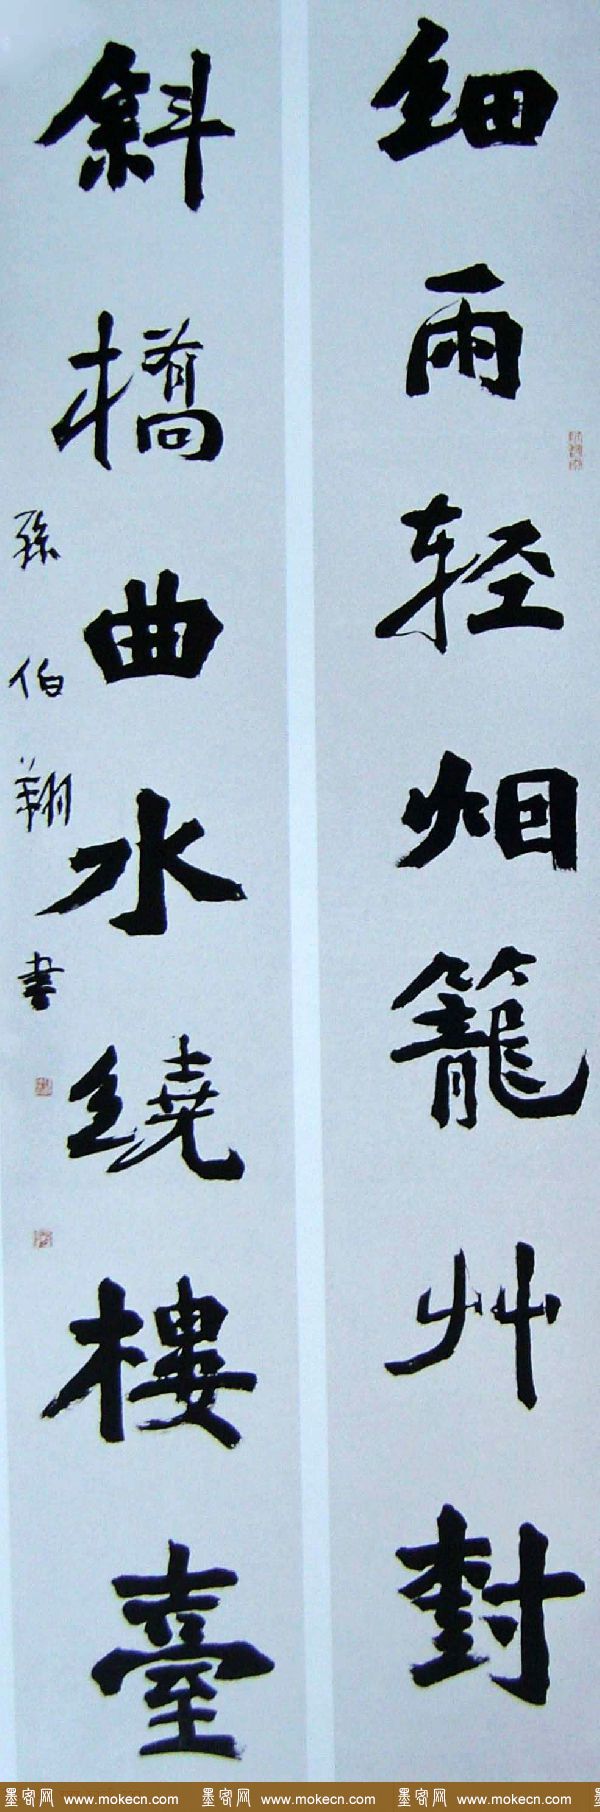 細雨轻烟籠艸樹
斜橋曲水繞樓臺
孫伯翔書
墨客网 www.mokecn.com 墨客网 www.mokecn.com 墨客网 www.mokecn.com